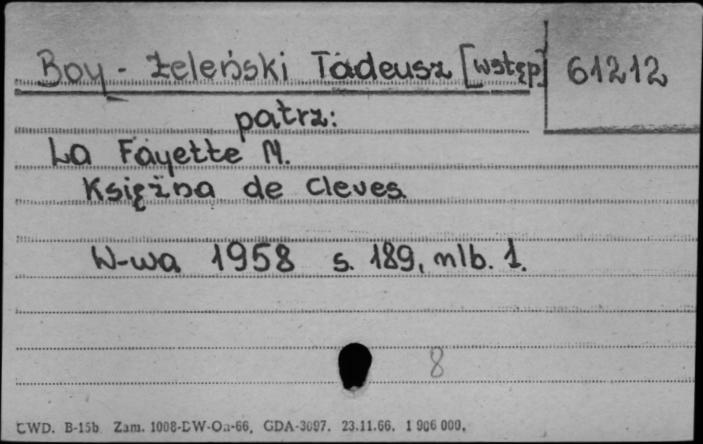 Boy - Żeleński Tadeusz [wstęp] 61212
patrz:
La Fayette M.
Księżna de Cleves.
W-wa 1958 s. 189, nlb. 1.
8
CWD. B-15b Zam. 1008-DW-On-66. GDA-3697. 23.11.66. 1 906 000.